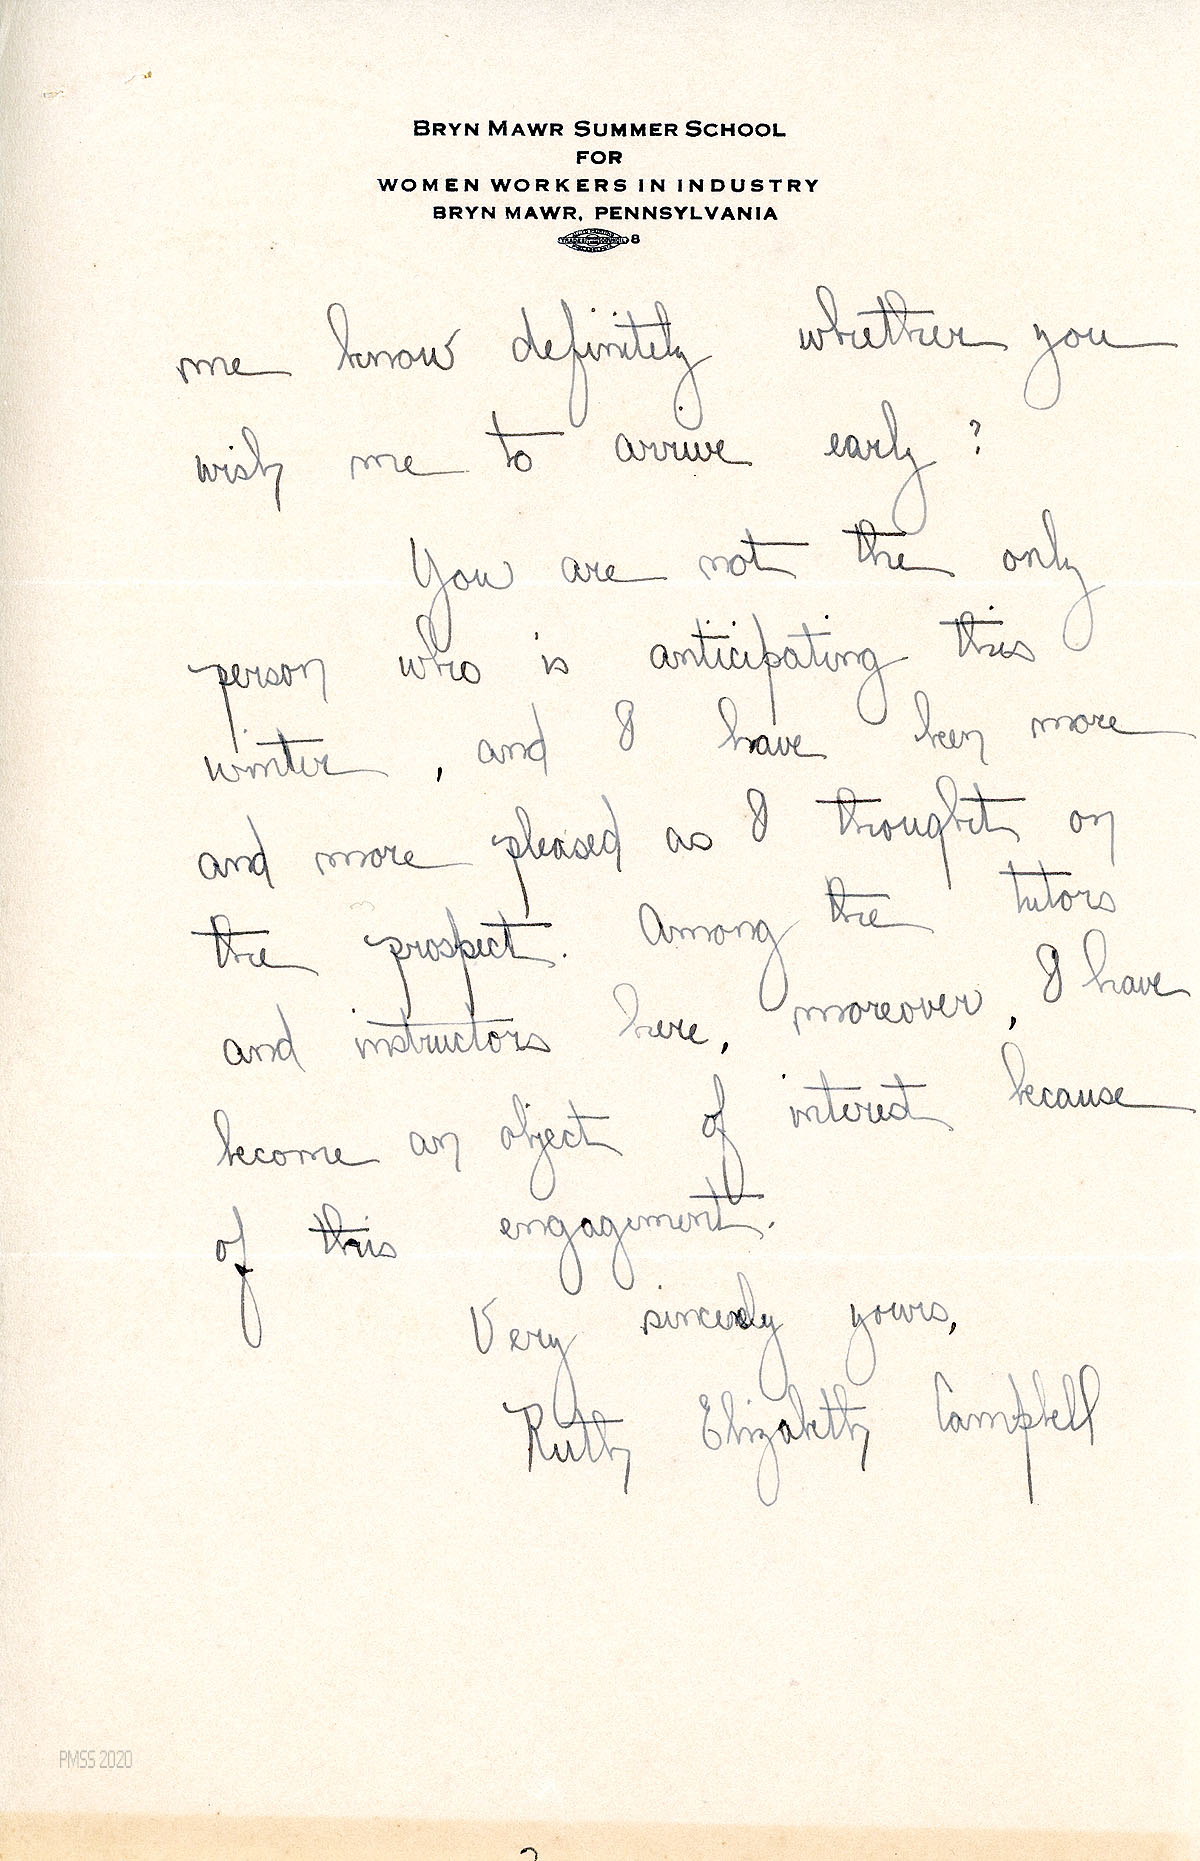 BRYN MAWR SUMMER SCHOOL
FOR
WOMEN WORKERS IN INDUSTRY
BRYN MAWR, PENNSYLVANIA
8
me know definitely whether you
wish me to arrive early?
You are not the only
person who is anticipating this
winter, and I have been more
and more pleased as I thought on
the prospect. Among the tutors
and instructors here, moreover, I have
become an object of interest because
of this engagement.
Very sincerely yours,
Ruth Elizabeth Campbell
PMSS 2020